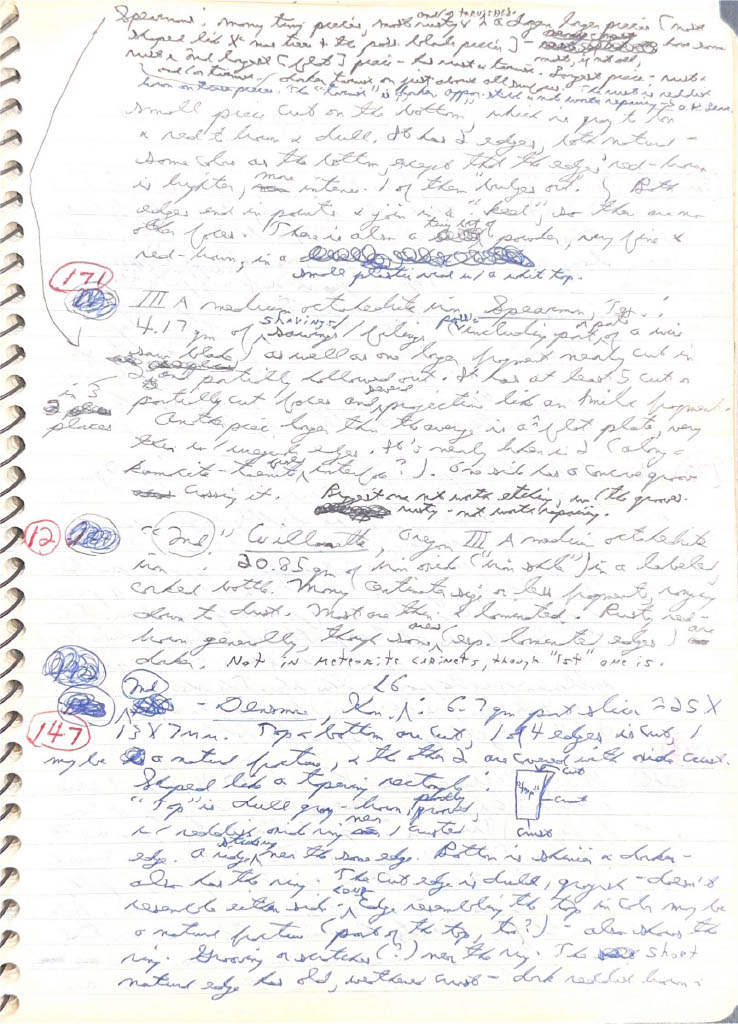 Spearman: many tiny pieces, most rusty & a dozen larger pieces [most
shaped like & the poss. blade pieces] - have some
rust & 2nd largest [flat] piece - has rust & tarnish. Largest piece - rust &
and/or tarnish / darker tarnish on just above all surfaces. The rust is reddish
brown on these pieces. The "tarnish" is darker not worth repairing
small piece cut on the bottom, which is gray to brown
& red to brown & dull. It has 2 edges, both natural -
same color as the bottom, except that the edges' red-brown
is brighter, more intense. 1 of them "bulges out." Both
edges end in points & join in a "keel", so there are no
other faces. There is also a tiny bit of powder, very fine &
red-brown, in a
small plastic vial w/ a white top.
171
III A medium octahedrite iron Spearman, Tex.:
4.17 gm of shavings / filings, (including poss. parts of a wire
saw blade) as well as one larger fragment nearly cut in
2 and partially hollowed out. It has at least 5 cut or
in 3
places
partially cut faces and several projections like an fragment.
Another piece larger than the average is a flat plate, very
thin w/ irregular edges. It's nearly broken in 2 (along a
kamacite-taenite interface?). One side has a concave groove
crossing it. Biggest one not worth etching, in the grooves.
rusty - not worth repairing.
12 "2nd" Willamette, Oregon III A medium octahedrite
iron: 20.85 gm of iron oxide ("iron shale") in a labeled,
corked bottle. Many centimeter size or less fragments, ranging
down to dust. Most are thin & laminated. Rusty red-
brown generally, though some areas (esp. laminated edges) are
darker. Not in meteorite cabinets, though "1st" one is.
2nd L6
147 - Densmore, Kan.: 6.7 gm part slice ≈25 X
13 X 7 mm. Top & bottom are cut, 1 of 4 edges is cut, 1
may be a natural fracture, & the other 2 are covered with oxide crust.
Shaped like a tapering rectangle: cut "top" crust
"Top" is dull gray-brown, partly grooved, crust
w/ reddish oxide ring near 1 crusted
edge. A near the same edge. Bottom is shinier & darker -
also has the ring. The cut edge is dull, grayish - doesn't
resemble either side. Edge resembling the top in color may be
a natural fracture (part of the top, too?) - also shows the
ring. Grooving or scratches (?) near the ring. The short
natural edge has old, weathered crust - dark reddish brown -